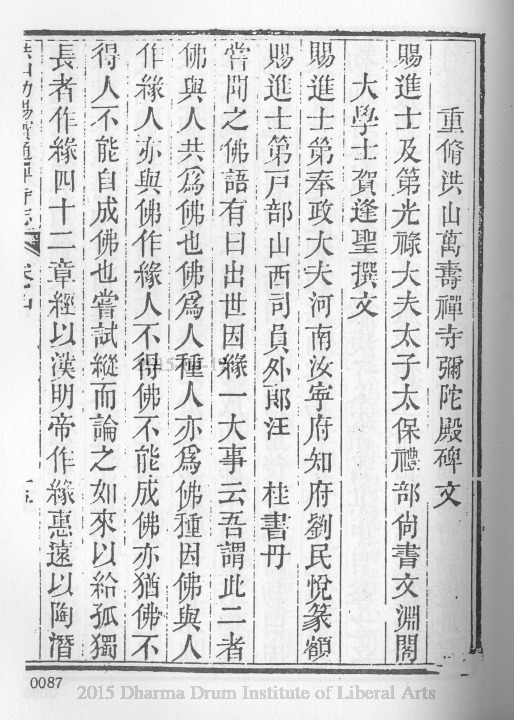 重脩洪山萬壽禪寺彌陀殿碑文
賜進士及第光祿大夫太子太保禮部尙書文淵閣
大學士賀逢聖撰文
賜進士第奉政大夫河南汝寧府知府劉民悅篆額
賜進士第戸部山西司員外郞汪 桂書丹
嘗聞之佛語有曰出世因緣一大事云吾謂此二者
佛與人共爲佛也佛爲人種人亦爲佛種因佛與人
作緣人亦與佛作緣人不得佛不能成佛亦猶佛不
得人不能自成佛也嘗試縱而論之如來以給孤獨
長者作緣四十二章經以漢明帝作緣惠遠以陶潛
0087
2015 Dharma Drum Institute of Liberal Arts